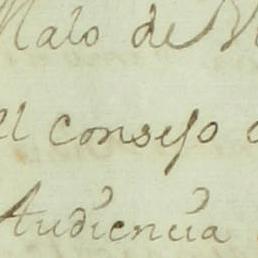 Malo de
el consejo
Audiencia